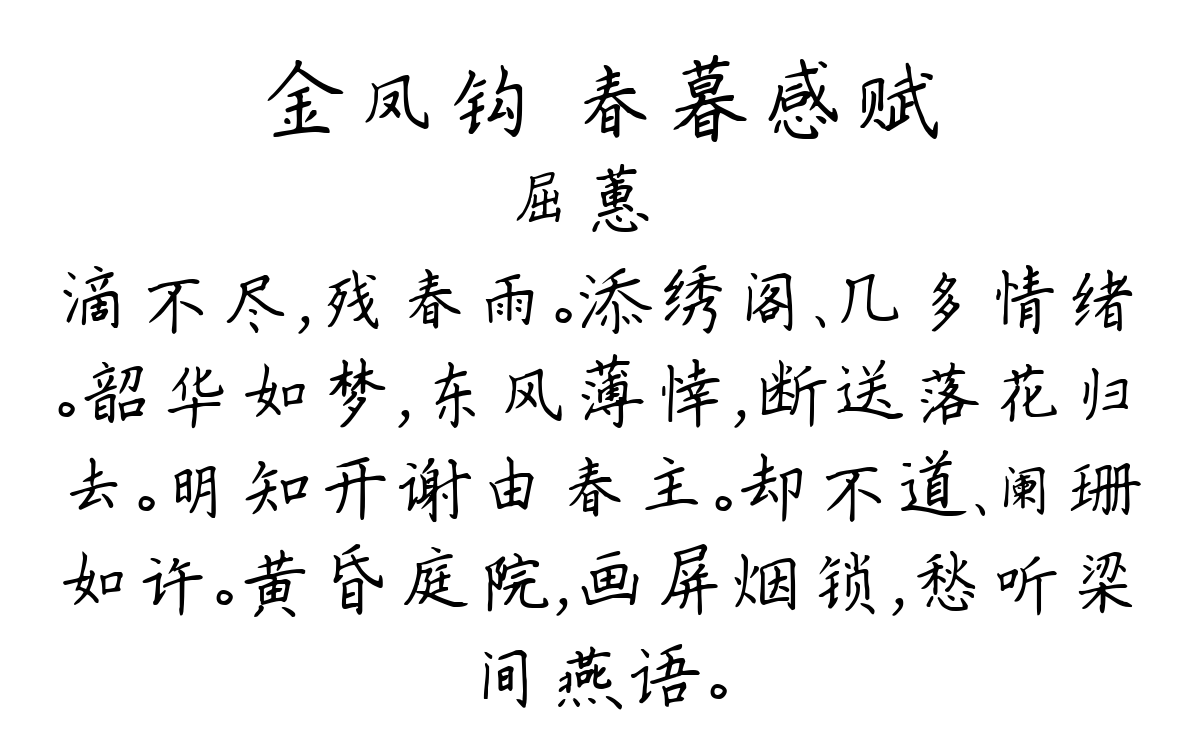 金凤钩 春暮感赋
屈蕙
滴不尽,残春雨。添绣阁、几多情绪
。韶华如梦,东风薄悻,断送落花归
去。明知开谢由春主。却不道、阑珊
如许。黄昏庭院,画屏烟锁,愁听梁
间燕语。